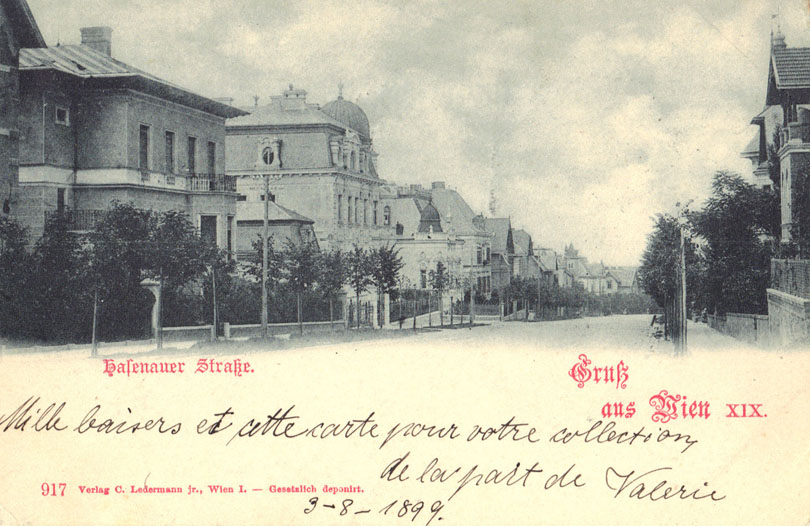 Hasenauer Straße.
Gruß
aus Wien XIX.
Mille baisers et cette carte pour votre collection,
de la part de Valerie
917 Verlag C. Ledermann jr., Wien I. — Gesetzlich deponirt.
3-8-1899.